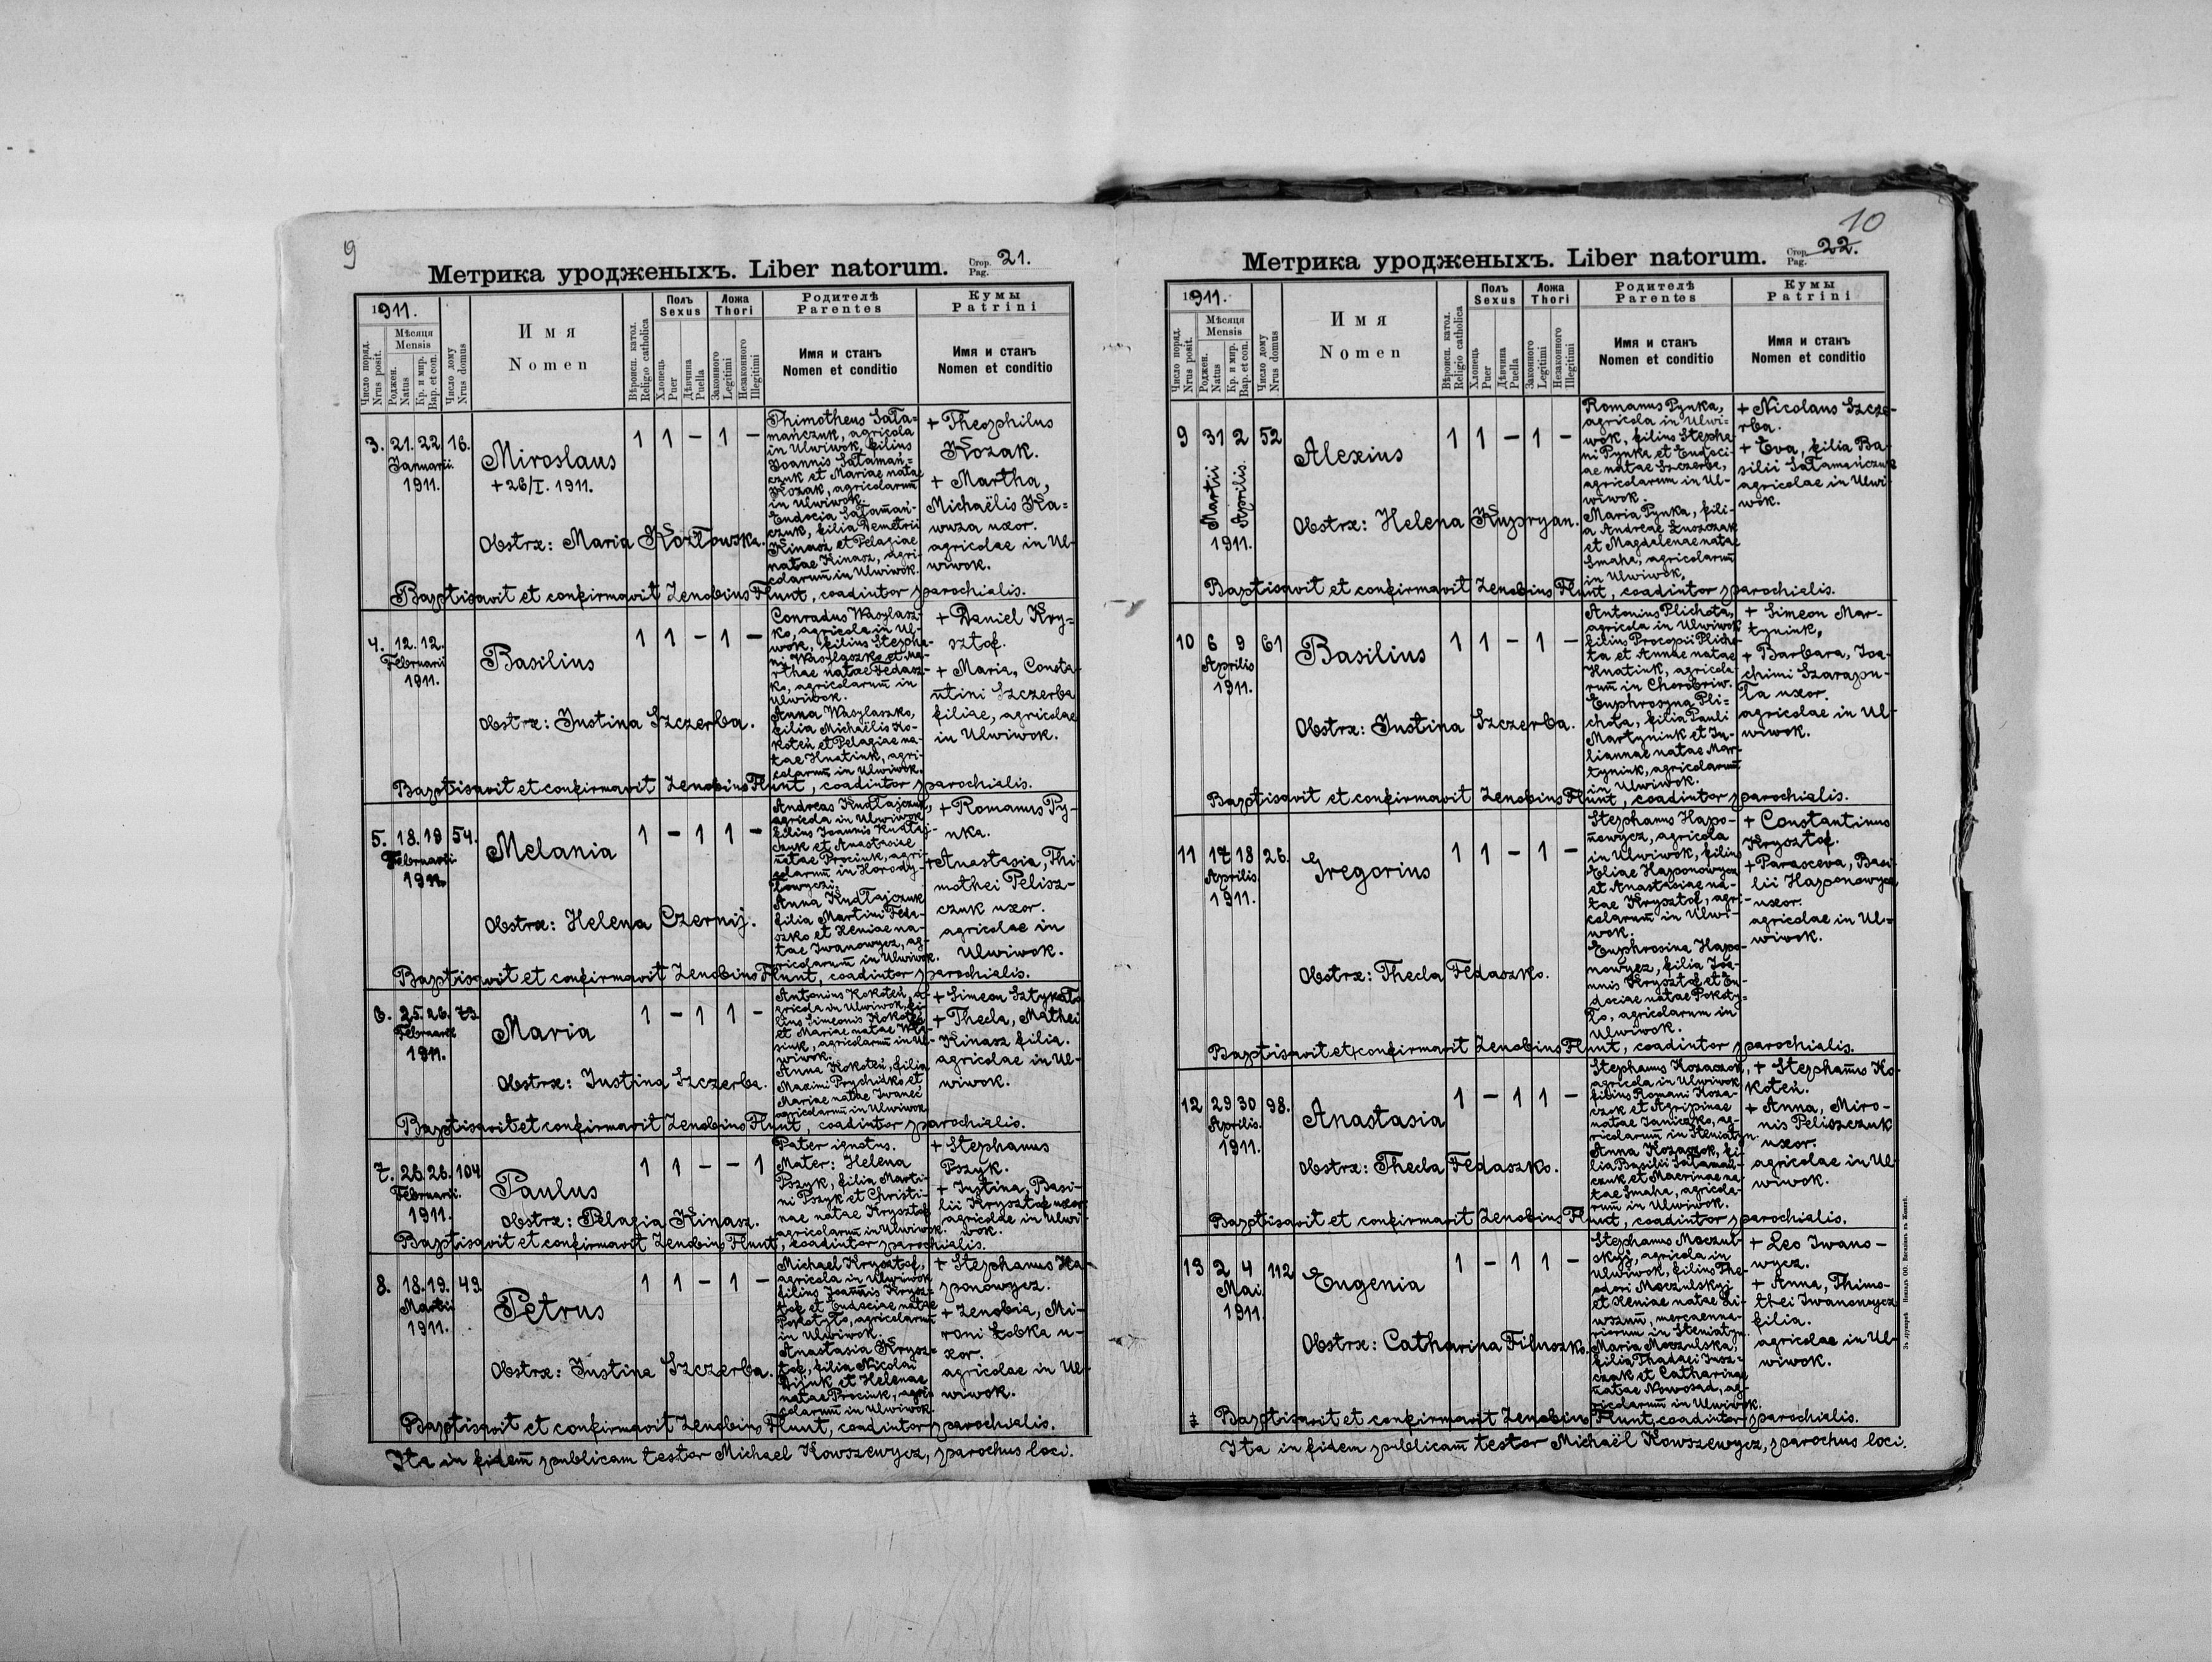 9
Метрика уродженыхъ. Liber natorum. Стор. Pag. 21.
1911.
Число поряд. Nrus posit.
Мѣсяця Mensis
Роджен. Natus
Кр. и мир. Bap. et con.
Число дому Nrus domus
Имя
Nomen
Вѣроисп. катол. Religio catholica
Полъ Sexus
Хлопець Puer
Дѣвчина Puella
Ложа Thori
Законного Legitimi
Незаконного Illegitimi
Родителѣ
Parentes
Имя и станъ
Nomen et conditio
Кумы
Patrini
Имя и станъ
Nomen et conditio
3. 21. 22 16.
Januarii
1911.
Miroslaus
+ 26/I. 1911.
Obstrx: Maria Kozłowska.
1 1 – 1 –
Thimotheus Sała=
mańczuk, agricola
in Ulwiwok, filius
Joannis Sałamań=
czuk et Mariae natae
Kozak, agricolarum̄
in Ulwiwok.
Eudocia Sałamań-
czuk, filia Demetrii
Kinasz et Pelagiae
natae Kinasz, agri-
colarum̄ in Ulwiwok.
+ Theophilus
Kozak.
+ Martha,
Michaëlis Ka=
wuza uxor.
agricolae in Ul-
wiwok.
Baptisavit et confirmavit Zenobius Flunt, coadiutor parochialis.
4. 12. 12.
Februarii
1911.
Basilius
Obstrx: Justina Szczerba.
1 1 – 1 –
Conradus Wasylasz-
ko, agricola in Ul-
wok, filius Stepha-
ni Wasylaszko et Ma-
rthae natae Fedasz-
ko, agricolarum̄ in
Ulwiwok.
Anna Wasylaszko,
filia Michaëlis Ko-
koteń et Pelagiae na-
tae Hnatiuk, agri-
colarum̄ in Ulwiwok.
+ Daniel Kry=
sztof.
+ Maria, Consta-
ntini Szczerba
filiae, agricolae
in Ulwiwok.
Baptisavit et confirmavit Zenobius Flunt, coadiutor parochialis.
5. 18. 19 54.
Februarii
1911.
Melania
Obstrx: Helena Czernij.
1 – 1 1 –
Andreas Kudłajczuk,
agricola in Ulwiwok
filius Joannis Kudłaj-
czuk et Anastasiae
natae Prociuk, agri-
colarum̄ in Horody-
łowyczi.
Anna Kudłajczuk
filia Martini Feda-
szko et Xeniae na-
tae Iwanowycz, ag-
ricolarum̄ in Ulwiwok.
+ Romanus Py-
nka.
+ Anastasia, Thi-
mothei Pelisz-
czuk uxor.
agricolae in
Ulwiwok.
Baptisavit et confirmavit Zenobius Flunt, coadiutor parochialis.
6. 25. 26. 73.
Februarii
1911.
Maria
Obstrx: Justina Szczerba.
1 – 1 1 –
Antonius Kokoteń, a-
gricola in Ulwiwok, fi-
lius Simeonis Kokoteń
et Mariae natae
agricolarum̄ in Ul-
wiwok.
Anna Kokoteń, filia
Maximi Prychidko et
Mariae natae Iwanec
agricolarum̄ in Ulwiwok
+ Simeon
+ Thecla, Mathei
Kinasz filia.
agricolae in Ul-
wiwok.
Baptisavit et confirmavit Zenobius Flunt, coadiutor parochialis.
7. 26. 26. 104
Februarii.
1911.
Paulus
Obstrx: Pelagia Kinasz.
1 1 – – 1
Pater ignotus.
Mater: Helena
Pszyk, filia Marti-
ni Pszyk et Christi-
nae natae Krysztof
agricolarum̄ in Ulwiwok.
+ Stephanus
Pszyk.
+ Justina, Basi-
lii Krysztof uxor
agricolae in Ulwi-
wok.
Baptisavit et confirmavit Zenobius Flunt, coadiutor parochialis.
8. 18. 19. 49.
Martii
1911.
Petrus
Obstrx: Justina Szczerba.
1 1 – 1 –
Michael Krysztof,
agricola in Ulwiwok
filius Joannis Krysz-
tof et Eudociae natae
Pokotyło, agricolarum̄
in Ulwiwok.
Anastasia Krysz=
tof, filia Nicolai
Dijuk et Helenae
natae Prociuk, agri-
colarum̄ in Ulwiwok
+ Stephanus Ha-
ponowycz.
+ Zenobia, Mi-
roni Łobka u-
xor.
agricolae in Ul-
wiwok.
Baptisavit et confirmavit Zenobius Flunt, coadiutor parochialis.
Ita in fidem̄ publicam testor Michael Kowszewycz, parochus loci.
10
Метрика уродженыхъ. Liber natorum. Стор. Pag. 22.
1911.
Число поряд. Nrus posit.
Мѣсяця Mensis
Роджен. Natus
Кр. и мир. Bap. et con.
Число дому Nrus domus
Имя
Nomen
Вѣроисп. катол. Religio catholica
Полъ Sexus
Хлопець Puer
Дѣвчина Puella
Ложа Thori
Законного Legitimi
Незаконного Illegitimi
Родителѣ
Parentes
Имя и станъ
Nomen et conditio
Кумы
Patrini
Имя и станъ
Nomen et conditio
9 31 2 52
Martii Aprilis.
1911.
Alexius
Obstrx: Helena Kupryan.
1 1 – 1 –
Romanus Pynka,
agricola in Ulwi=
wok, filius Stepha-
ni Pynka et Eudoci-
ae natae Szczerba,
agricolarum in Ul-
wiwok.
Maria Pynka, fili-
a Andreae Łuszczak
et Magdalenae natae
Smaha, agricolarum̄
in Ulwiwok.
+ Nicolaus Szcze-
rba.
+ Eva, filia Ba-
silii Sałamańczuk
agricolae in Ulwi-
wok.
Baptisavit et confirmavit Zenobius Flunt, coadiutor parochialis.
10 6 9 61
Aprilis
1911.
Basilius
Obstrx: Justina Szczerba.
1 1 – 1 –
Antonius Plichota,
agricola in Ulwiwok
filius Procopii Plicho-
ta et Annae natae
Hnatiuk, agricola-
rum̄ in Chorobriw.
Euphrosyna Pli=
chota, filia Pauli
Martyniuk et Ju-
liannae natae Mar-
tyniuk, agricolarum̄
in Ulwiwok.
+ Simeon Mar-
tyniuk,
+ Barbara, Joa-
chimi Szarapu-
ła uxor.
agricolae in Ul-
wiwok.
Baptisavit et confirmavit Zenobius Flunt, coadiutor parochialis.
11 17 18 26.
Aprilis
1911.
Gregorius
Obstrx: Thecla Fedaszko.
1 1 – 1 –
Stephanus Hapo-
nowycz, agricola
in Ulwiwok, filius
Eliae Haponowycz
et Anastasiae na-
tae Krysztof, agri-
colarum̄ in Ulwi-
wok.
Euphrosina Hapo-
nowycz, filia Joa-
nnis Krysztof et Eu-
dociae natae Pokoty=
ło, agricolarum in
Ulwiwok.
+ Constantinus
Krysztof.
+ Parasceva, Basi-
lii Haponowycz
uxor.
agricolae in Ul=
wiwok.
Baptisavit et confirmavit Zenobius Flunt, coadiutor parochialis.
12 29 30 98.
Aprilis.
1911.
Anastasia
Obstrx: Thecla Fedaszko.
1 – 1 1 –
Stephanus Kozaczok,
agricola in Ulwiwok
filius Romani Koza-
czok et Agripinae
natae Janiczko, ag-
ricolarum̄ in Steniatyn.
Anna Kozaczok, fi-
lia Basilii Sałamań-
czuk et Macrinae na-
tae Smaha, agricola-
rum̄ in Ulwiwok.
+ Stephanus Ko-
koteń.
+ Anna, Miro-
nis Peliszczuk
uxor.
agricolae in Ul-
wiwok.
Baptisavit et confirmavit Zenobius Flunt, coadiutor parochialis.
13 2 4 112
Mai
1911.
Eugenia
Obstrx: Catharina Filuszko.
1 – 1 1 –
Stephanus Moczul-
skyj, agricola in
Ulwiwok, filius The-
odori Moczulskyj
et Xeniae natae Li-
wszun̄, mercenna-
riorum in Steniatyn.
Maria Moczulska,
filia Thadaei Jusz-
czak et Catharinae
natae Nowosad, ag-
ricolarum̄ in Ulwiwok.
+ Leo Iwano-
wycz.
+ Anna, Thimo-
thei Iwanowycz
filia.
agricolae in Ul-
wiwok.
Baptisavit et confirmavit Zenobius Flunt, coadiutor parochialis.
Ita in fidem publicam̄ testor Michaël Kowszewycz, parochus loci.